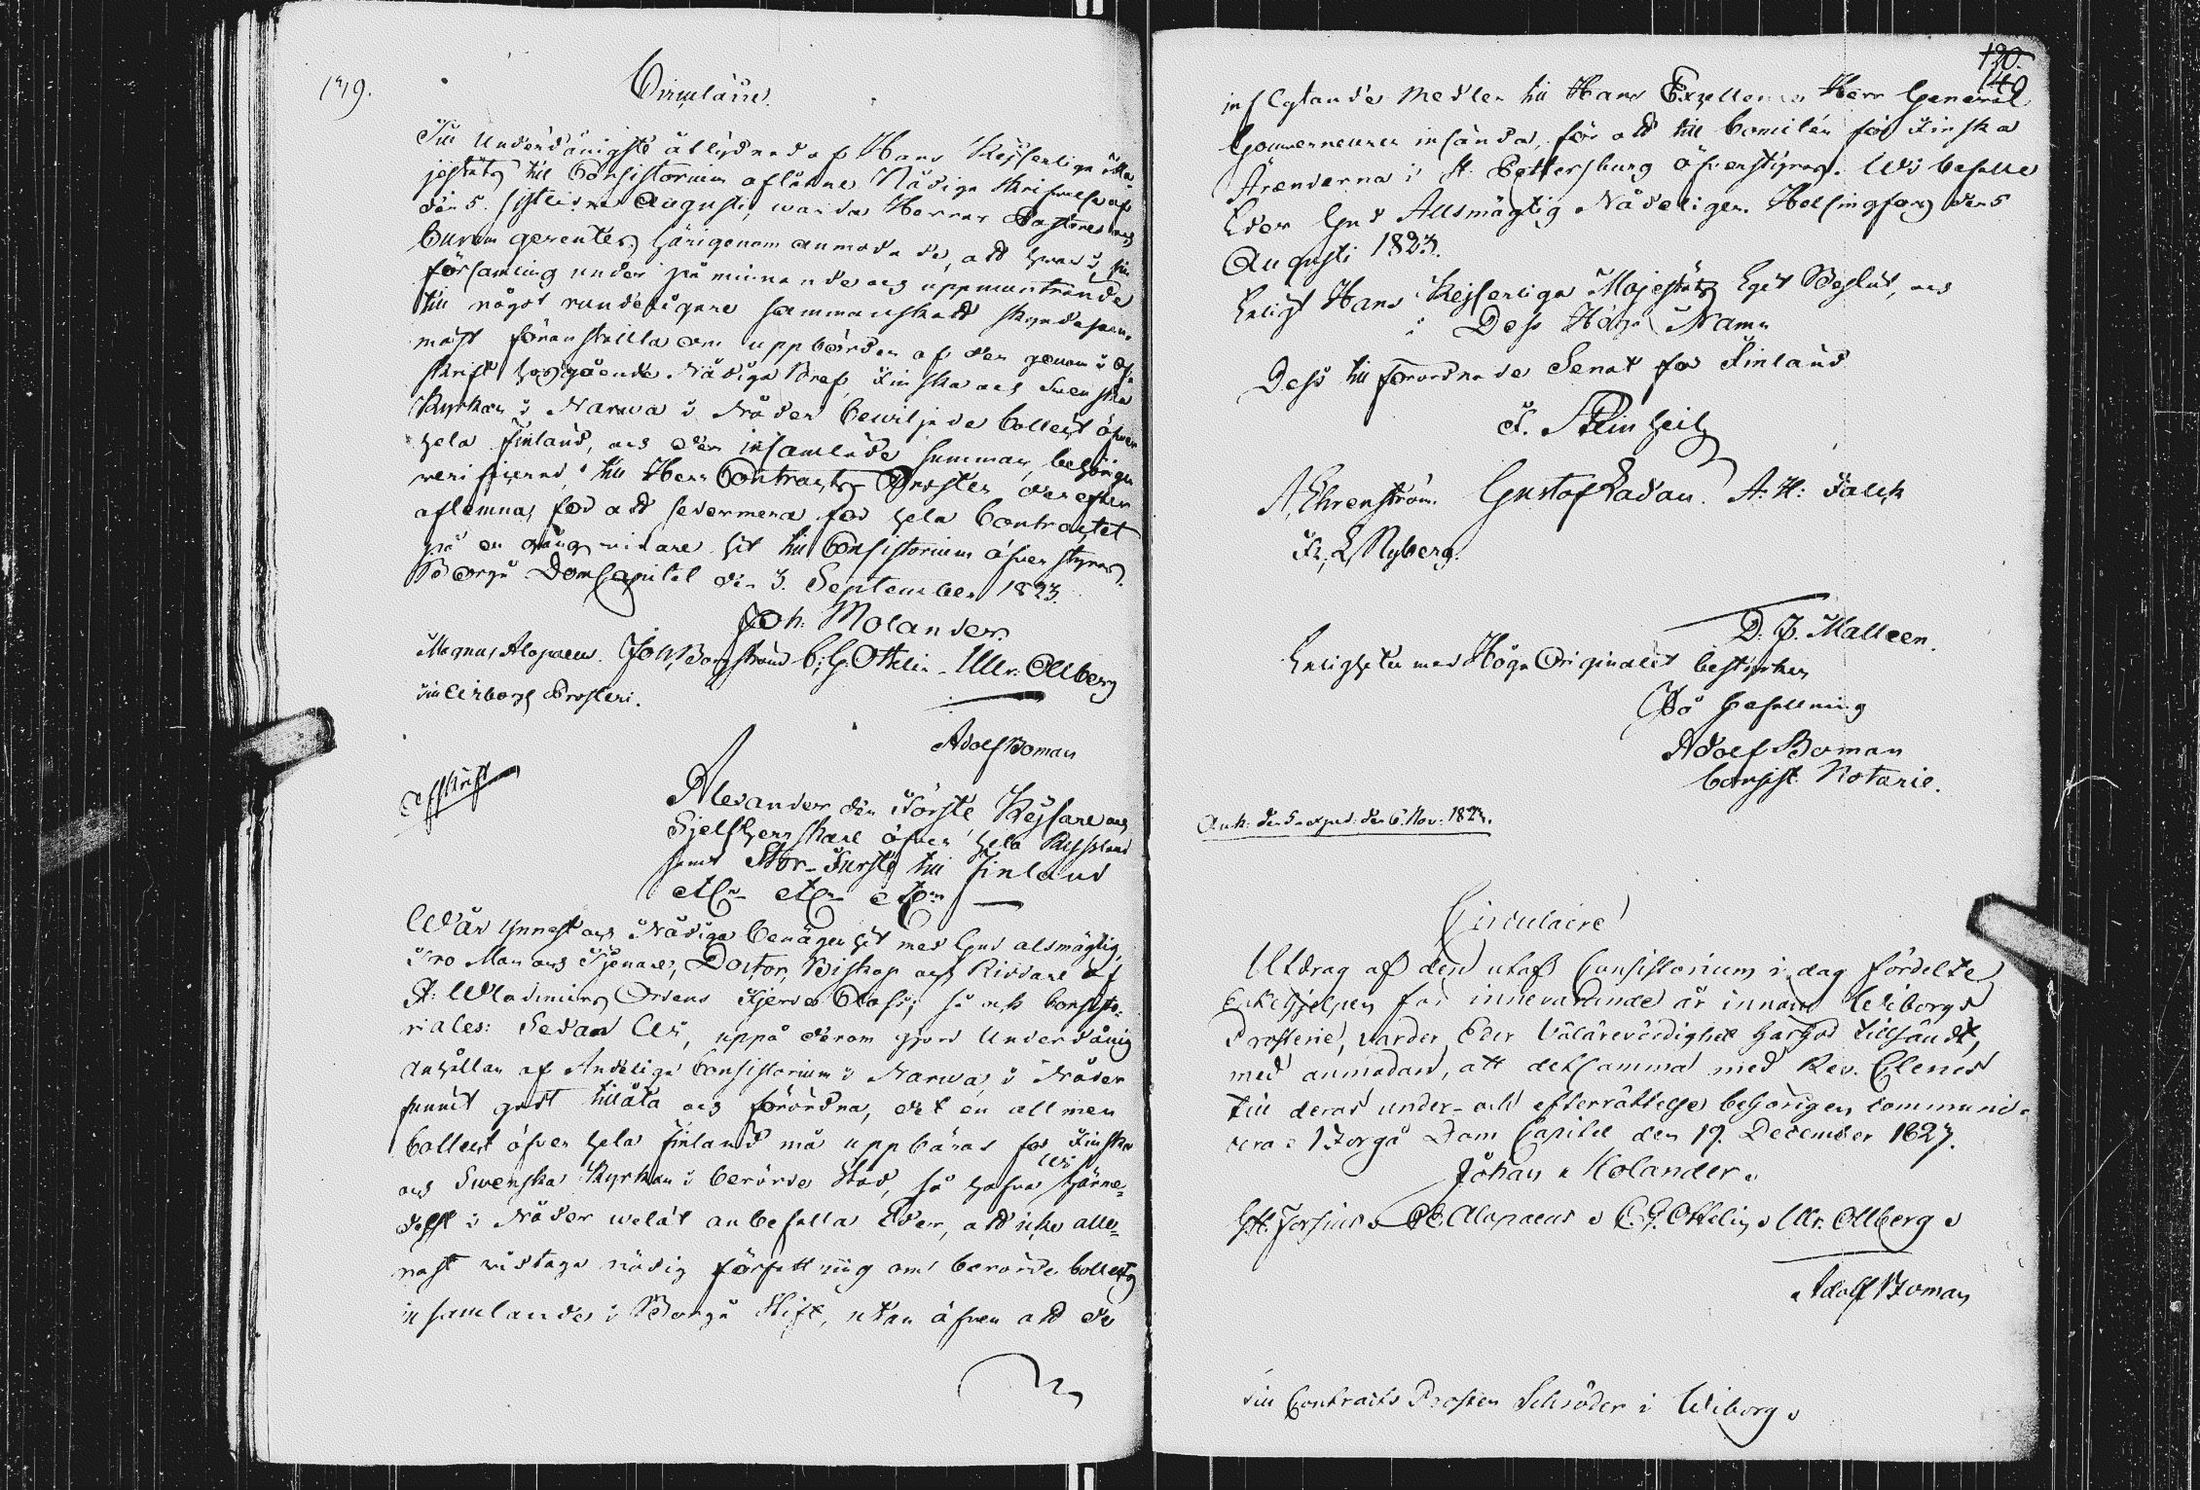 139.
Circulaire.
Till Underdånigste åtlydnad af Hans Kejserliga Ma-
jestäts till Consistorium aflåtne Nådiga skrifvelse af
den 5. sistledne Augusti, warda Herrar Pastores och
Curam gerentes härigenom anmodade, att hvar i sin
församling under påminnande och uppmuntrande
till något rundeligare sammanskott skyndesam-
mast föranstalta om uppbörden af den genom i af-
skrift hosgående Nådiga Bref, Finska och Swenska
Kyrkan i Narwa i Nåder bewiljade Collect öfver
hela Finland, och den insamlade summan, behörigen
verificerad, till Herr Contracts Prosten derefter
aflemnas för att sedermera för hela Contractet
på en gång vidare hit till Consistorium öfverstyras.
Borgå DomCapitel den 3. September 1823.
Joh. Molander.
Magnus Alopaeus. Joh. Borgström C. G. Ottelin. Ulr. Ollberg
Till Wiborgs Prosteri.
Adolf Boman
Afskrift
Alexander den Förste Kejsare och
Sjelfherrskare öfver hela Ryssland
samt Stor-Furste till Finland
etc. etc. etc.
Wår ynnest och Nådiga benägenhet med Gud alsmägtig,
Tro Man och Tjenare, Doctor, Biskop och Riddare af
St: Wladimirs Ordens Fjerde Class; så ock Consisto-
riales: Sedan Wi, uppå derom gjord Underdånig
anhållan af Andeliga Consistorium i Narwa, i Nåder
funnit godt tillåta och förordna, det en allmen
Collect öfver hela Finland må uppbäras för Finska
och Swenska Kyrkan i berörde Stad, så hafve Wi härme-
delst i Nåder welat anbefalla Eder, att icke alle-
nast vidtaga nödig författning om berörde Collects
insamlande i Borgå Stift, utan äfven att de
130.
140
inflytande medlen till Hans Excellence Herr General
Gouverneuren insända, för att till Comitén för Finska
Ärenderna i St. Pettersburg öfverstyras. Wi befalle
Eder Gud Allsmägtig Nådeligen. Helsingfors den 5
Augusti 1823.
Enligt Hans Kejserliga Majestäts Eget Beslut, och
i Dess Höga Namn
Dess tillförordnade Senat för Finland
F. Steinheil
A. Ehrenström. Gustaf Ladau. A. H: Falck
Fr. L. Nyberg.
D. J. Malleen.
Enligheten med Höga Originalet bestyrker
På befallning
Adolf Boman
Consist. Notarie.
Ank: den 5 exped: den 6. Nov. 1823.
Circulaire
Utdrag af den utaf Consistorium i dag fördelte
Enkehjelpen för innevarande år innom Wiborgs
Prosterie, varder Eder Välärevördighet härhos tillsändt,
med anmodan, att detsamma med Rev. Clerus
till deras under- och efterrättelse behörigen communi-
cera. Borgå Dom Capitel den 19. December 1827.
Johan Molander.
M. Alopaeus. C. G. Ottelin. Ulr. Ollberg.
Adolf Boman
Till Contracts Prosten Schröder i Wiborg.